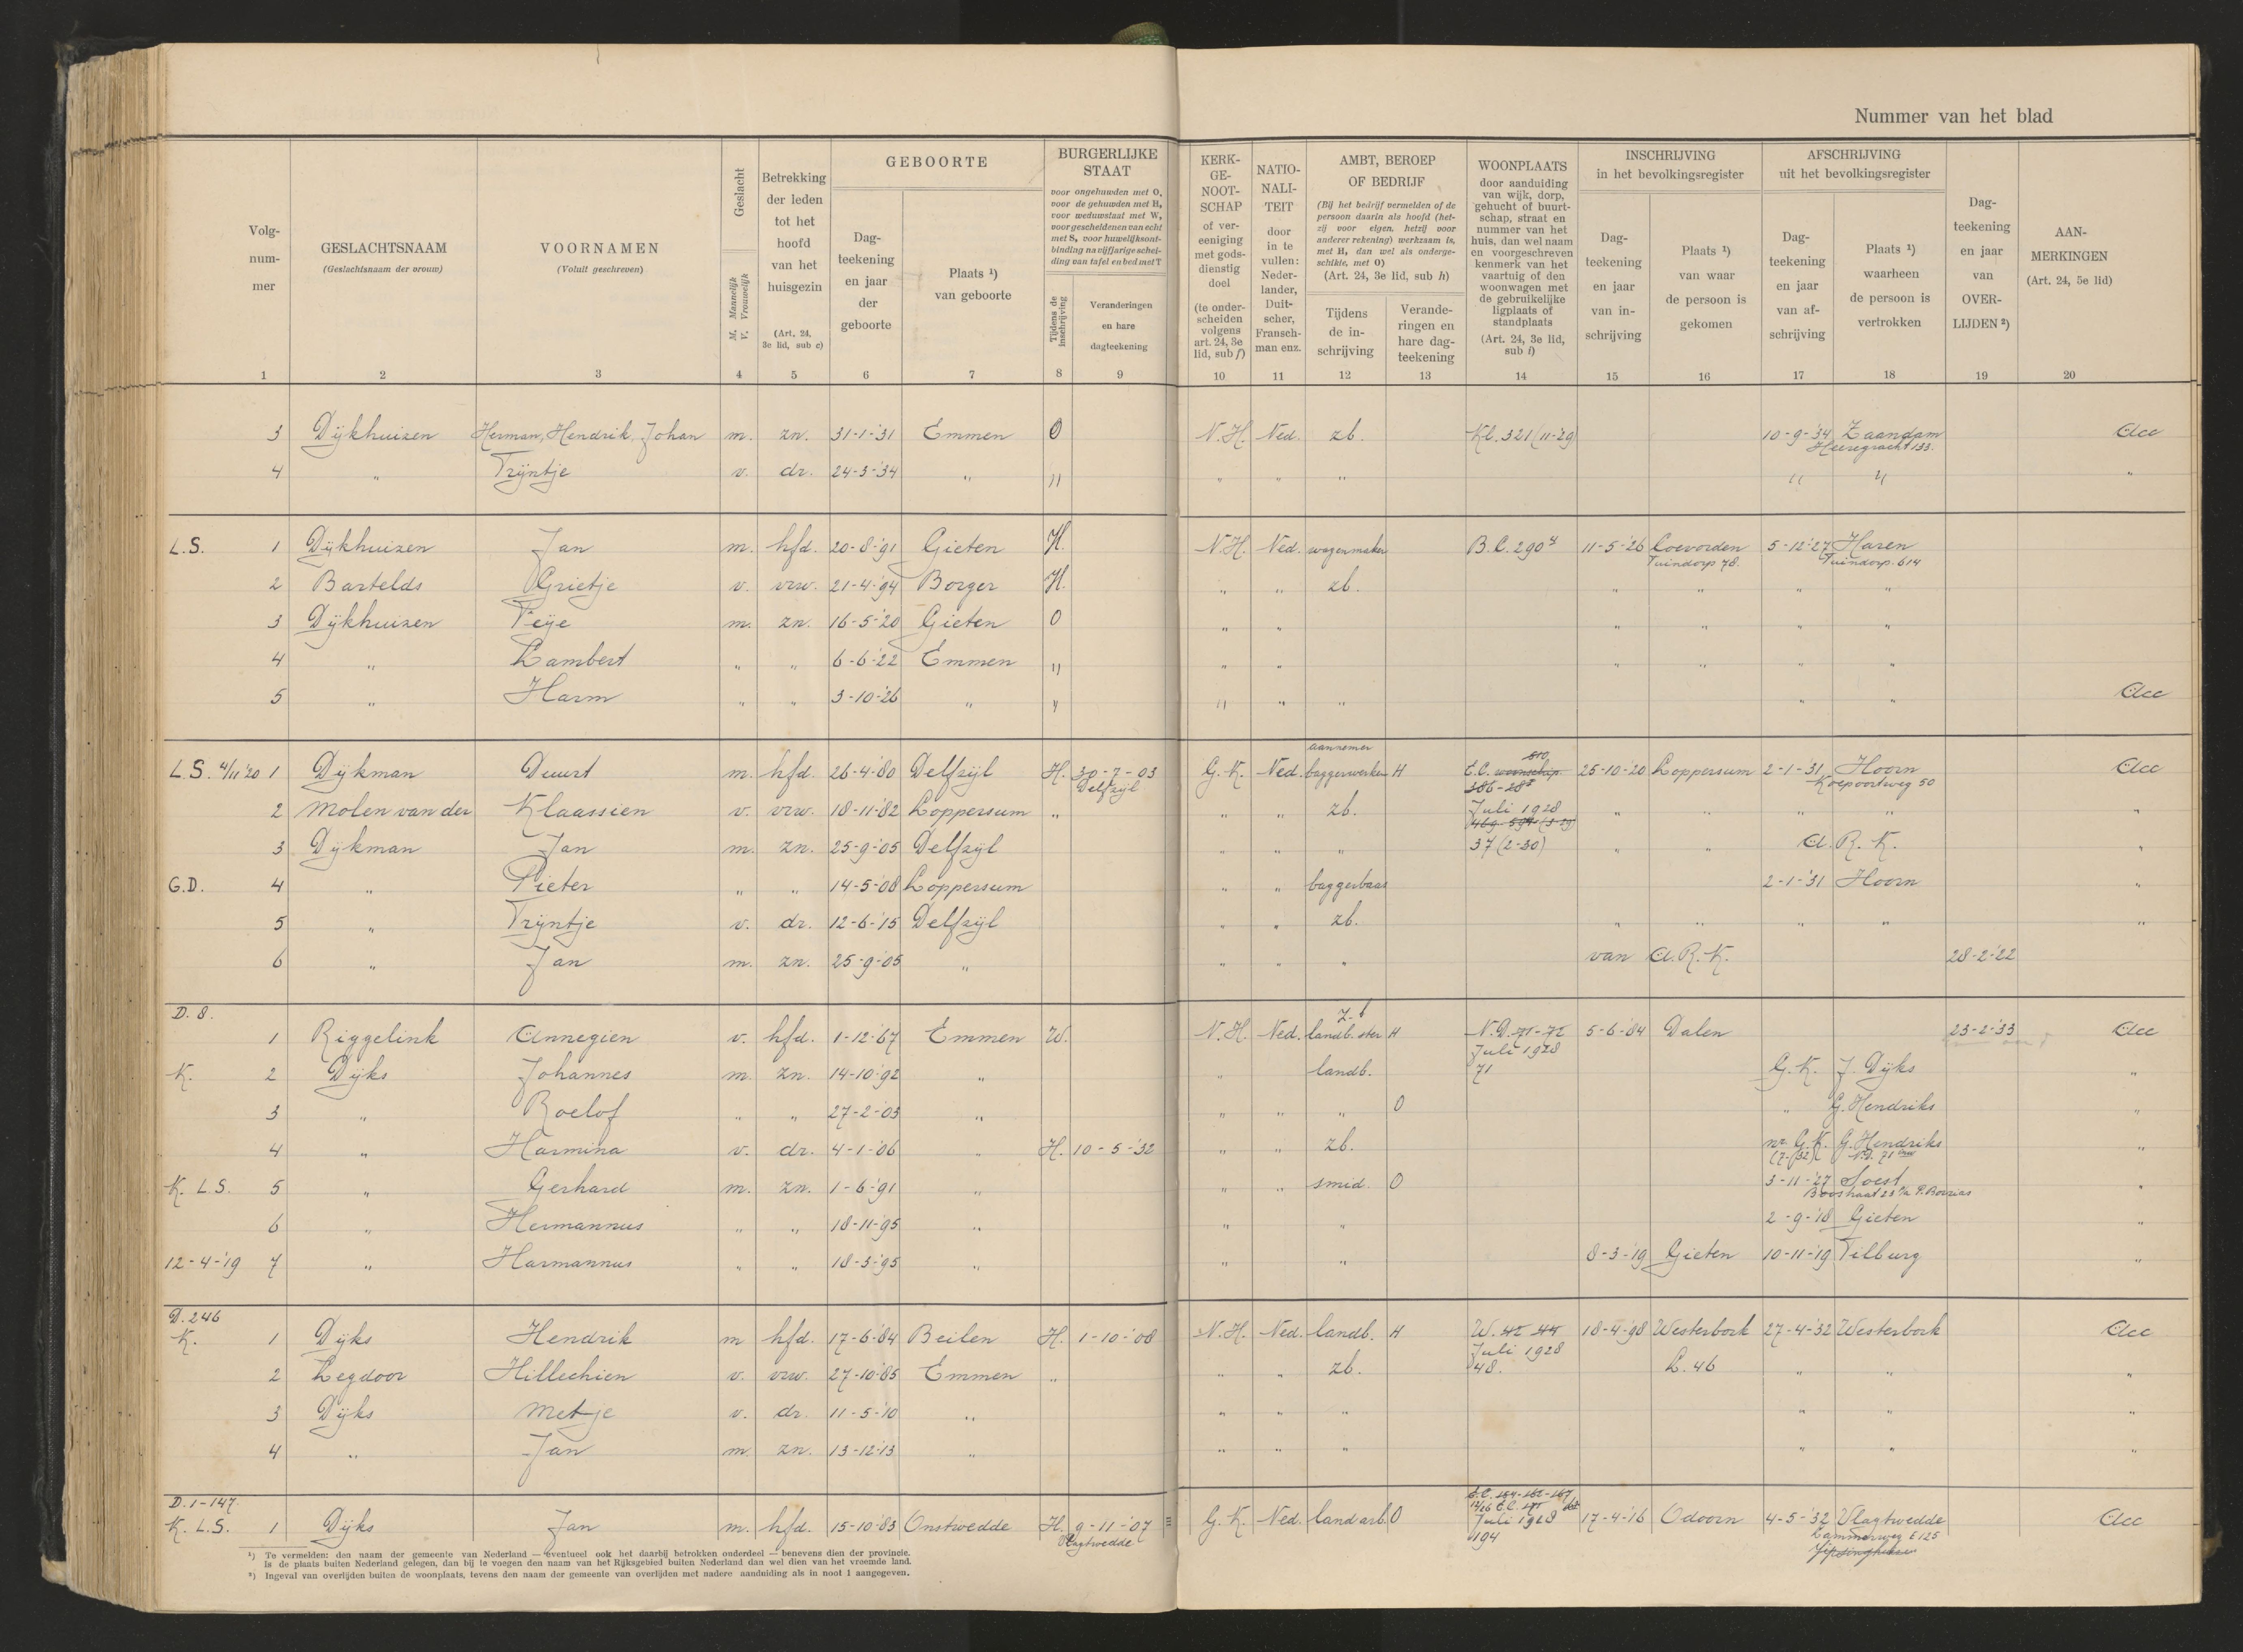 Nummer van het blad
Volg-
num-
mer
GESLACHTSNAAM
(Geslachtsnaam der vrouw)
VOORNAMEN
(Voluit geschreven)
Geslacht
M. Mannelijk
V. Vrouwelijk
Betrekking
der leden
tot het
hoofd
van het
huisgezin
(Art. 24,
3e lid, sub c)
GEBOORTE
Dag-
teekening
en jaar
der
geboorte
Plaats ¹)
van geboorte
BURGERLIJKE
STAAT
voor ongehuwden met O,
voor de gehuwden met H,
voor weduwstaat met W,
voor gescheidenen van echt
met S, voor huwelijksont-
binding na vijfjarige schei-
ding van tafel en bed met T
Tijdens de
inschrijving
Veranderingen
en hare
dagteekening
KERK-
GE-
NOOT-
SCHAP
of ver-
eeniging
met gods-
dienstig
doel
(te onder-
scheiden
volgens
art. 24, 3e
lid, sub f)
NATIO-
NALI-
TEIT
door
in te
vullen:
Neder-
lander,
Duit-
scher,
Fransch-
man enz.
AMBT, BEROEP
OF BEDRIJF
(Bij het bedrijf vermelden of de
persoon daarin als hoofd (het-
zij voor eigen, hetzij voor
anderer rekening) werkzaam is,
met H, dan wel als onderge-
schikte, met O)
(Art. 24, 3e lid, sub h)
Tijdens
de in-
schrijving
Verande-
ringen en
hare dag-
teekening
WOONPLAATS
door aanduiding
van wijk, dorp,
gehucht of buurt-
schap, straat en
nummer van het
huis, dan wel naam
en voorgeschreven
kenmerk van het
vaartuig of den
woonwagen met
de gebruikelijke
ligplaats of
standplaats
(Art. 24, 3e lid,
sub i)
INSCHRIJVING
in het bevolkingsregister
Dag-
teekening
en jaar
van in-
schrijving
Plaats ¹)
van waar
de persoon is
gekomen
AFSCHRIJVING
uit het bevolkingsregister
Dag-
teekening
en jaar
van af-
schrijving
Plaats ¹)
waarheen
de persoon is
vertrokken
Dag-
teekening
en jaar
van
OVER-
LIJDEN ²)
AAN-
MERKINGEN
(Art. 24, 5e lid)
1 2 3 4 5 6 7 8 9 10 11 12 13 14 15 16 17 18 19 20
3 Dijkhuizen Herman, Hendrik, Johan m. zn. 31-1-'31 Emmen O N.H. Ned. zb. Kl. 321 (11-'29) 10-9-'34 Zaandam Acc
Heeregracht 133.
4 " Trijntje v. dr. 24-3-'34 " " " " " " " "
L.S. 1 Dijkhuizen Jan m. hfd. 20-8-'91 Gieten H. N.H. Ned. wagenmaker B.C. 290⁴ 11-5-'26 Coevorden 5-12-'27 Haren
Tuindorp 78. Tuindorp. 614
2 Bartelds Grietje v. vrw. 21-4-'94 Borger H. " " zb. " " " "
3 Dijkhuizen Feije m. zn. 16-5-'20 Gieten O " " " " " "
4 " Lambert " " 6-6-'22 Emmen " " " " " " "
5 " Harm " " 3-10-'26 " " " " " " " Acc
aannemer 510
L.S. 4/11 '20 1 Dijkman Deurt m. hfd. 26-4-'80 Delfzijl H. 30-7-03 G.K. Ned. baggerwerken H E.C. woonschip 25-10-20 Loppersum 2-1-'31 Hoorn Acc
Delfzijl 386-28³ Koepoortweg 50
2 Molen van der Klaassien v. vrw. 18-11-'82 Loppersum " " " zb. Juli 1928 " " " " "
469 594 (3-29)
3 Dijkman Jan m. zn. 25-9-'05 Delfzijl " " " 37 (2-30) " " A.R.K. "
G.D. 4 " Pieter " " 14-5-'08 Loppersum " " baggerbaas 2-1-'31 Hoorn "
5 " Trijntje v. dr. 12-6-'15 Delfzijl " " zb. " " " " "
6 " Jan m. zn. 25-9-'05 " " " " van A.R.K. 28-2-'22
D. 8. z.b
1 Riggelink Annegien v. hfd. 1-12-'67 Emmen W. N.H. Ned. landb.ster H N.D. 71-72 5-6-'84 Dalen 23-2-'33 Acc
Juli 1928
K. 2 Dijks Johannes m. zn. 14-10-'92 " " landb. 71 G.K. J. Dijks "
3 " Roelof " " 27-2-'03 " " " " O " G. Hendriks "
4 " Harmina v. dr. 4-1-'06 " H. 10-5-'32 " " zb. nr G.K. G. Hendriks "
(7-'32) N.D. 71
K. L.S. 5 " Gerhard m. zn. 1-6-'91 " " " smid. O 3-11-'27 Soest "
6 " Hermannus " " 18-11-'95 " " " 2-9-'18 Gieten "
12-4-'19 7 " Harmannus " " 18-3-'95 " " " 8-3-'19 Gieten 10-11-'19 Tilburg "
D. 246
K. 1 Dijks Hendrik m hfd. 17-6-'84 Beilen H. 1-10-'08 N.H. Ned. landb. H W. 42 44 18-4-'98 Westerbork 27-4-'32 Westerbork Acc
Juli 1928
2 Legdoor Hillechien v. vrw. 27-10-'85 Emmen " " " zb. 48. L. 46 " " "
3 Dijks Metje v. dr. 11-5-'10 " " " " " " "
4 " Jan m. zn. 13-12-'13 " " " " " " "
D. 1-147.
K. L.S. 1 Dijks Jan m. hfd. 15-10-'83 Onstwedde H. 9-11-'07 G.K. Ned. landarb. O Juli 1928 17-4-'16 Odoorn 4-5-'32 Vlagtwedde Acc
Vlagtwedde 194 Lammerweg E 125
¹) Te vermelden: den naam der gemeente van Nederland — eventueel ook het daarbij betrokken onderdeel — benevens dien der provincie.
Is de plaats buiten Nederland gelegen, dan bij te voegen den naam van het Rijksgebied buiten Nederland dan wel dien van het vreemde land.
²) Ingeval van overlijden buiten de woonplaats, tevens den naam der gemeente van overlijden met nadere aanduiding als in noot 1 aangegeven.